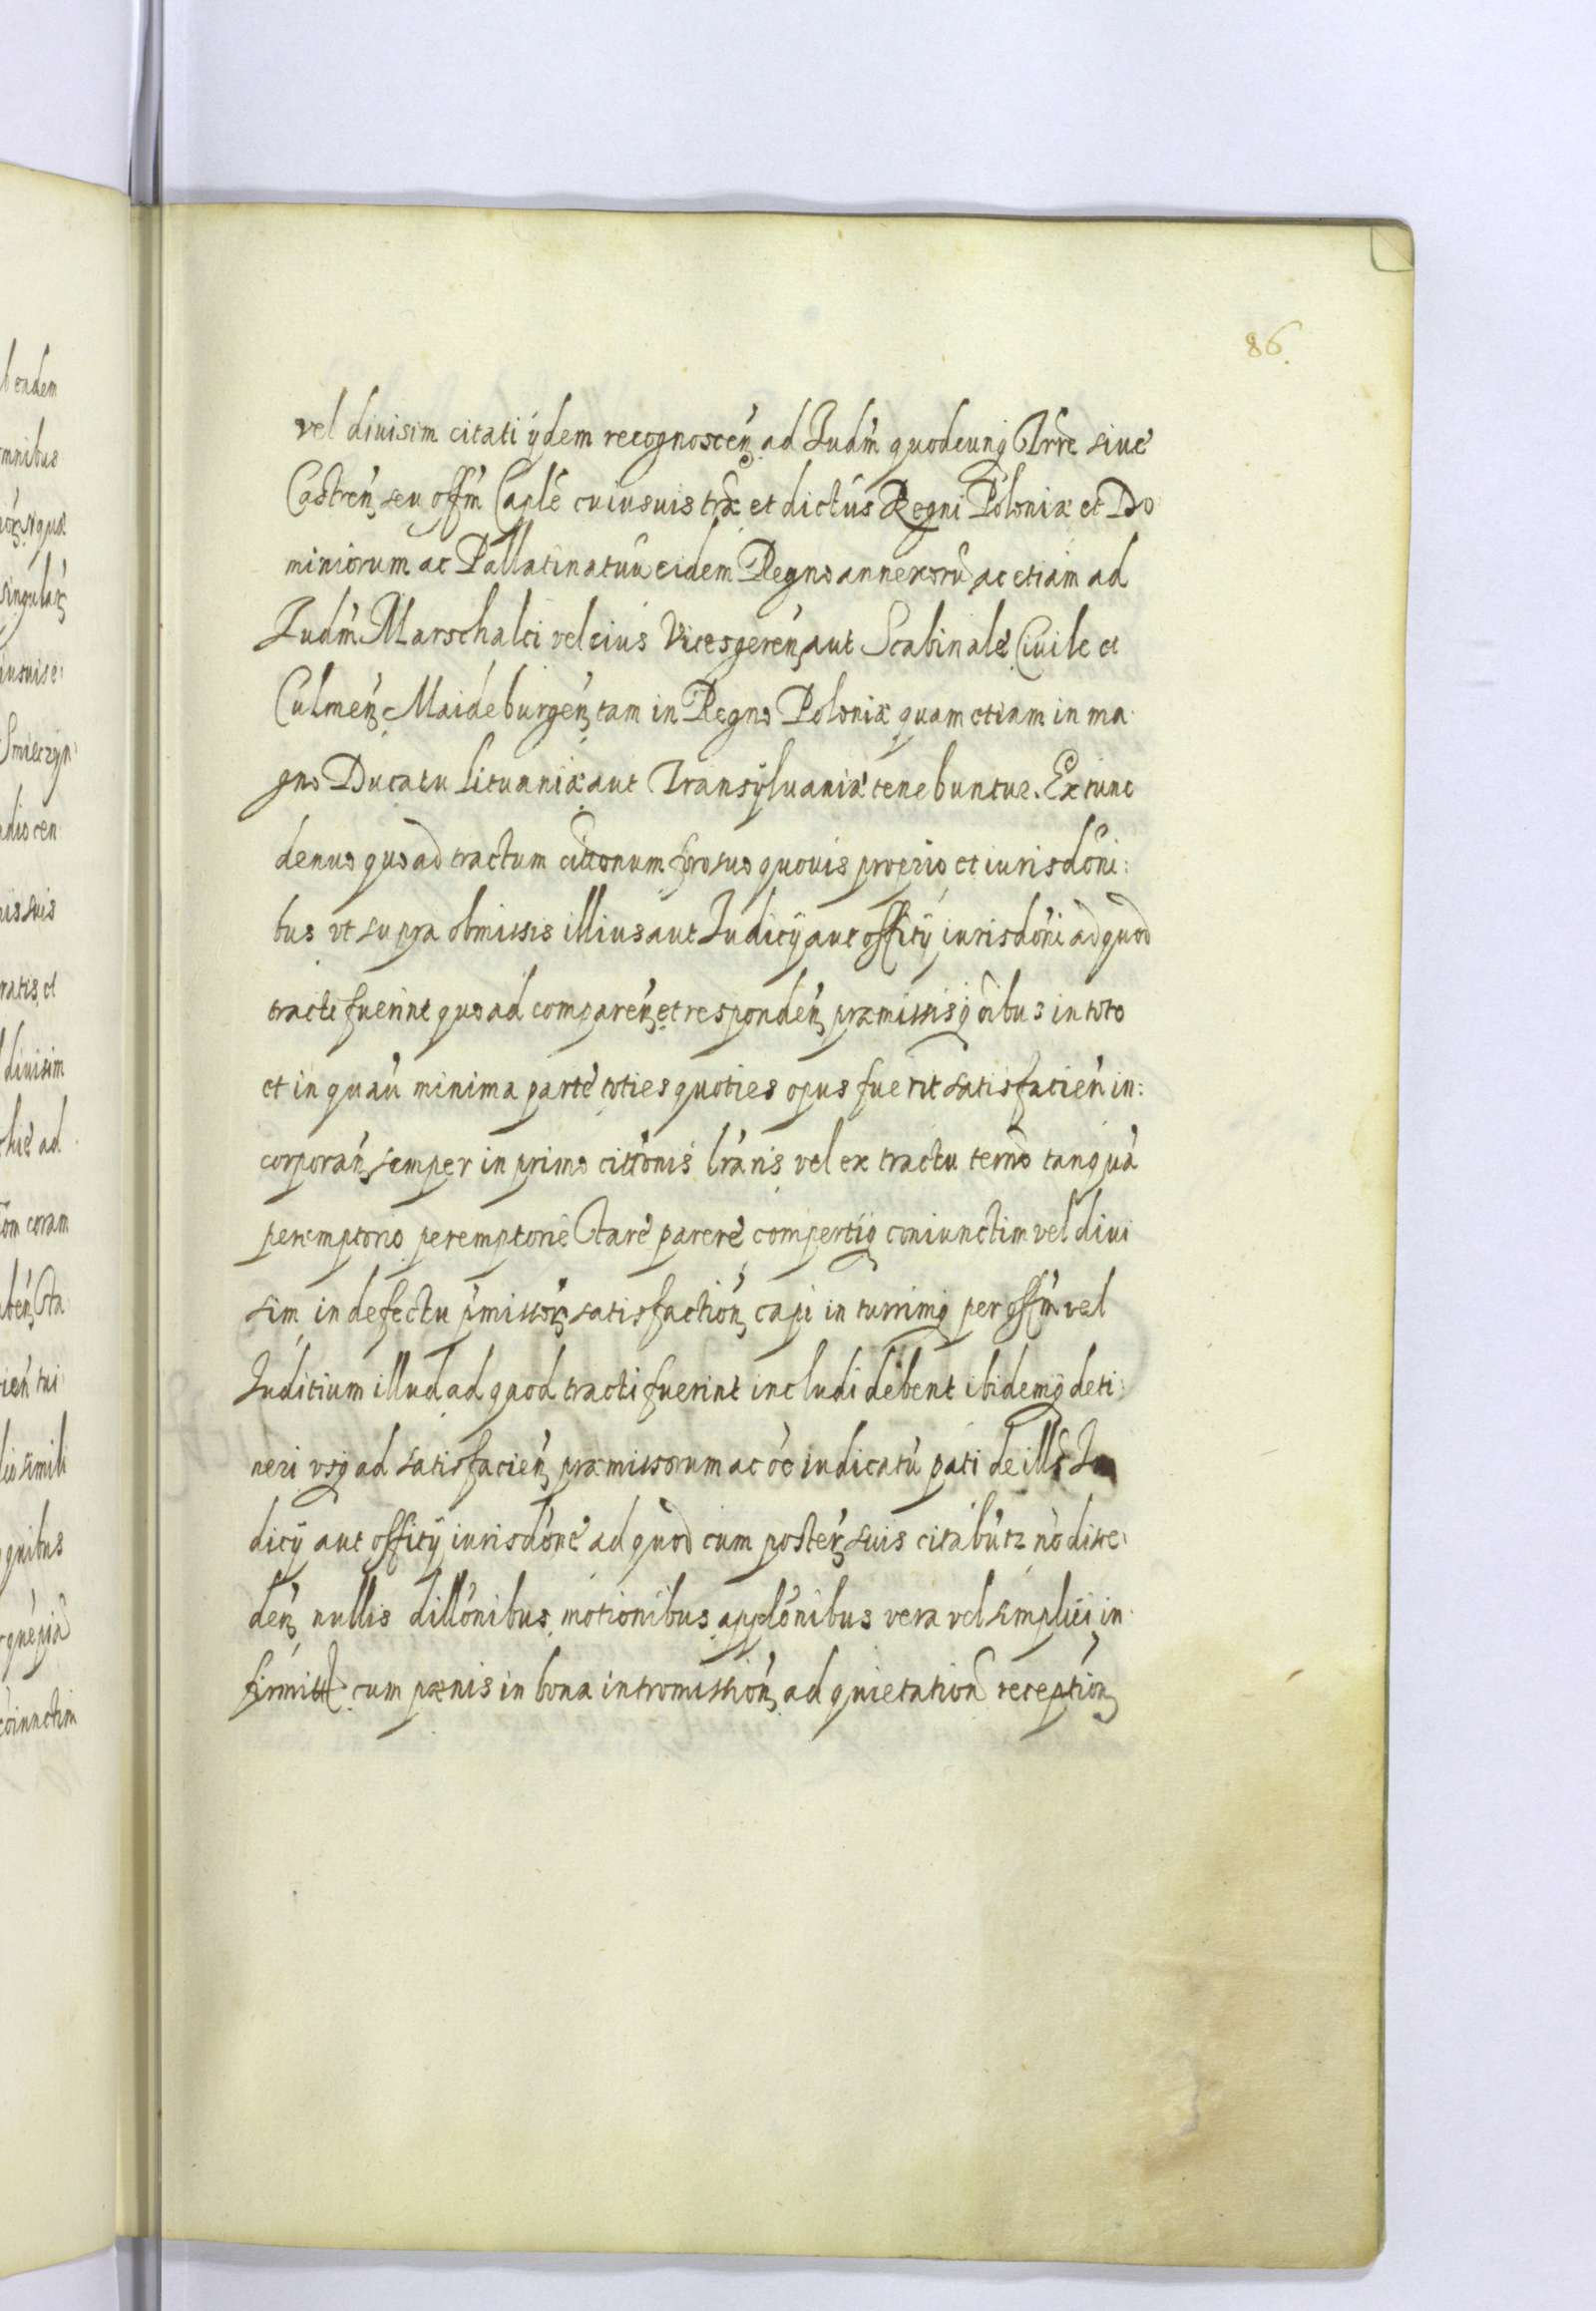 86.
vel diuisim citati ijdem recognoscen̄ ad Iudm̄ quodcunq Trre siue
Castren̄ seu offm̄ Caple cuiusuis trae et dictus Regni Poloniæ et Do
miniorum ac Pallatinatuū eidem Regno annexorū ac etiam ad
Iudm̄ Marschalci vel eius Vicesgeren̄ aut Scabinale Ciuile et
Culmen̄ Maideburgen̄ tam in Regno Poloniæ quam etiam in ma
gno Ducatu Lituaniæ aut Transylvaniæ tenebuntur. Ex tunc
denuo quoad tractum cittonum foro suo quouis proprio et iurisdōni:
bus vt supra obmissis illius aut Iudicij aut officij iurisdōni ad quod
tracti fuerint quoad comparen̄ et responden̄ præmissisq oībus in toto
et in quaū minima parte toties quoties opus fuerit satisfacien̄ in:
corporan̄ semper in primo cittōnis lrāris vel ex tractu termō tanquā
peremptorio peremptorie stare parere compertiq coniunctim vel diui
sim in defectu pmissor̄ satisfaction̄ capi in turrimq per offm̄ vel
Iuditium illud ad quod tracti fuerint includi debent ibidemq deti:
neri vsq ad satisfacien̄ præmissorum ac oē iudicatū pati de illo Iu
dicij aut officij iurisdōne ad quod cum poster̄ suis citabūtz nō disce:
den̄ nullis dillōnibus motionibus applōnibus vera vel simplici in
firmitte cum pænis in bona intromission̄ ad quietation̄ reception̄